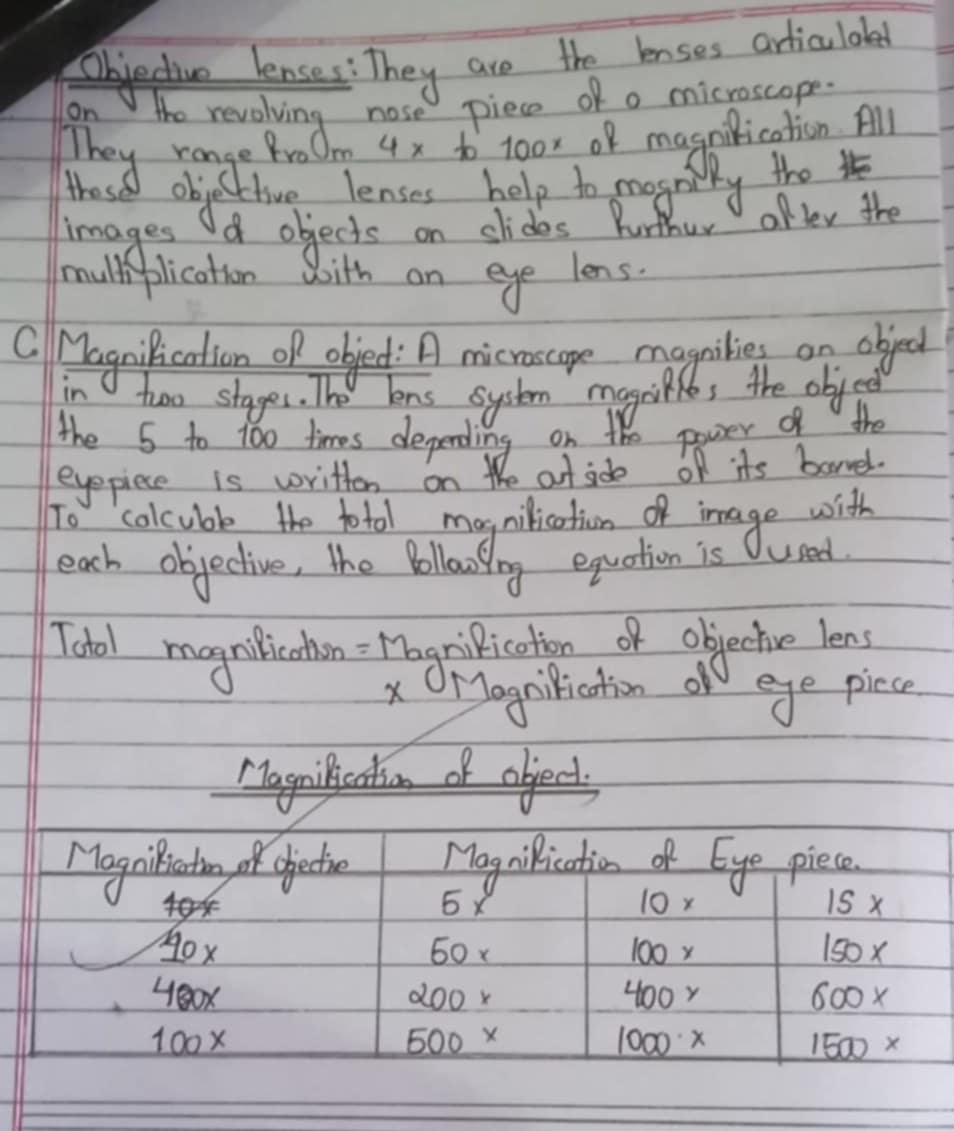 Objective lenses: They are the lenses articulated
on the revolving nose piece of a microscope.
They range from 4x to 100x of magnification. All
these objective lenses help to magnify the
images of objects on slides furthur after the
multiplication with an eye lens.
C Magnification of object: A microscope magnifies an object
in two stages. The lens system magnifies the object
the 5 to 100 times depending on the power of the
eyepiece is written on the out side of its barrel.
To calculate the total magnification of image with
each objective, the following equation is used.
Total magnification = Magnification of objective lens
x Magnification of eye piece
Magnification of object.
Magnification of objective Magnification of Eye piece.
10x 5x 10x 15x
10x 50x 100x 150x
40x 200x 400x 600x
100x 500x 1000x 1500x